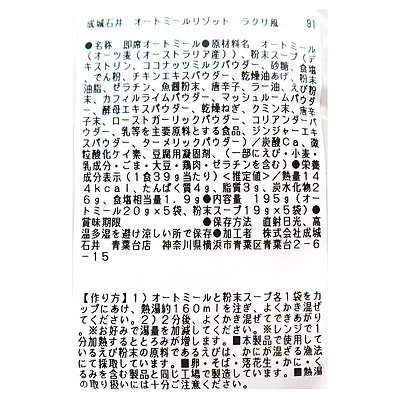 成城石井 オートミールリゾット ラクサ風 91
●名称 即席オートミール●原材料名 オートミール
(オーツ麦(オーストラリア産))、粉末スープ(デ
キストリン、ココナッツミルクパウダー、砂糖、食塩
、でん粉、チキンエキスパウダー、乾燥油あげ、粉末
油脂、ゼラチン、魚醤粉末、唐辛子、ラー油、えび粉
末、カフィルライムパウダー、マッシュルームパウダ
ー、酵母エキスパウダー、乾燥ねぎ、クミン末、唐辛
子末、ローストガーリックパウダー、コリアンダーパ
ウダー、乳等を主要原料とする食品、ジンジャーエキ
スパウダー、ターメリックパウダー)/炭酸Ca、微
粒酸化ケイ素、豆腐用凝固剤、(一部にえび・小麦・
乳成分・ごま・大豆・鶏肉・ゼラチンを含む)●栄養
成分表示(1食39g当たり)<推定値>/熱量14
4kcal、たんぱく質4g、脂質3g、炭水化物2
6g、食塩相当量1.9g●内容量 195g(オー
トミール20g×5袋、粉末スープ19g×5袋)●
賞味期限 ●保存方法 直射日光、高
温多湿を避け涼しい所で保存●加工者 株式会社成城
石井 青葉台店 神奈川県横浜市青葉区青葉台2-6
-15
【作り方】1)オートミールと粉末スープ各1袋をカ
ップにあけ、熱湯約160mlを注ぎ、よくかき混ぜ
てください。2)2分後、よくかき混ぜてできあがり。
※お好みで湯量を加減してください。※レンジで1
分加熱するととろみが増します。■本製品で使用して
いるえび粉末の原料であるえびは、かにが混ざる漁法
にて採取しています。■卵・そば・落花生・かに・く
るみを含む製品と同じ工場で製造しています。■熱湯
の取り扱いには十分ご注意ください。